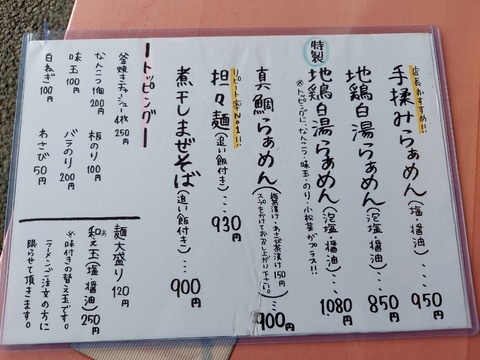 店長おすすめ!!
手揉みらぁめん(塩・醤油)… 950円
地鶏白湯らぁめん(泡塩・醤油)… 850円
特製
地鶏白湯らぁめん(泡塩・醤油)… 1080円
※トッピングに、なんこつ・味玉・のり・小松菜がプラス!!
真鯛らぁめん 900円
リピート率No1!!
担々麺(追い飯付き)… 930円
煮干しまぜそば(追い飯付き)… 900円
ートッピングー
釜焼きチャーシュー4枚 250円
なんこつ1個 200円
板のり 100円
味玉 100円
バラのり 200円
白ねぎ 100円
わさび 50円
麺大盛り 120円
和え玉(塩・醤油) 250円
※味付きの替え玉です。
ラーメンご注文の方に
限らせて頂きます。